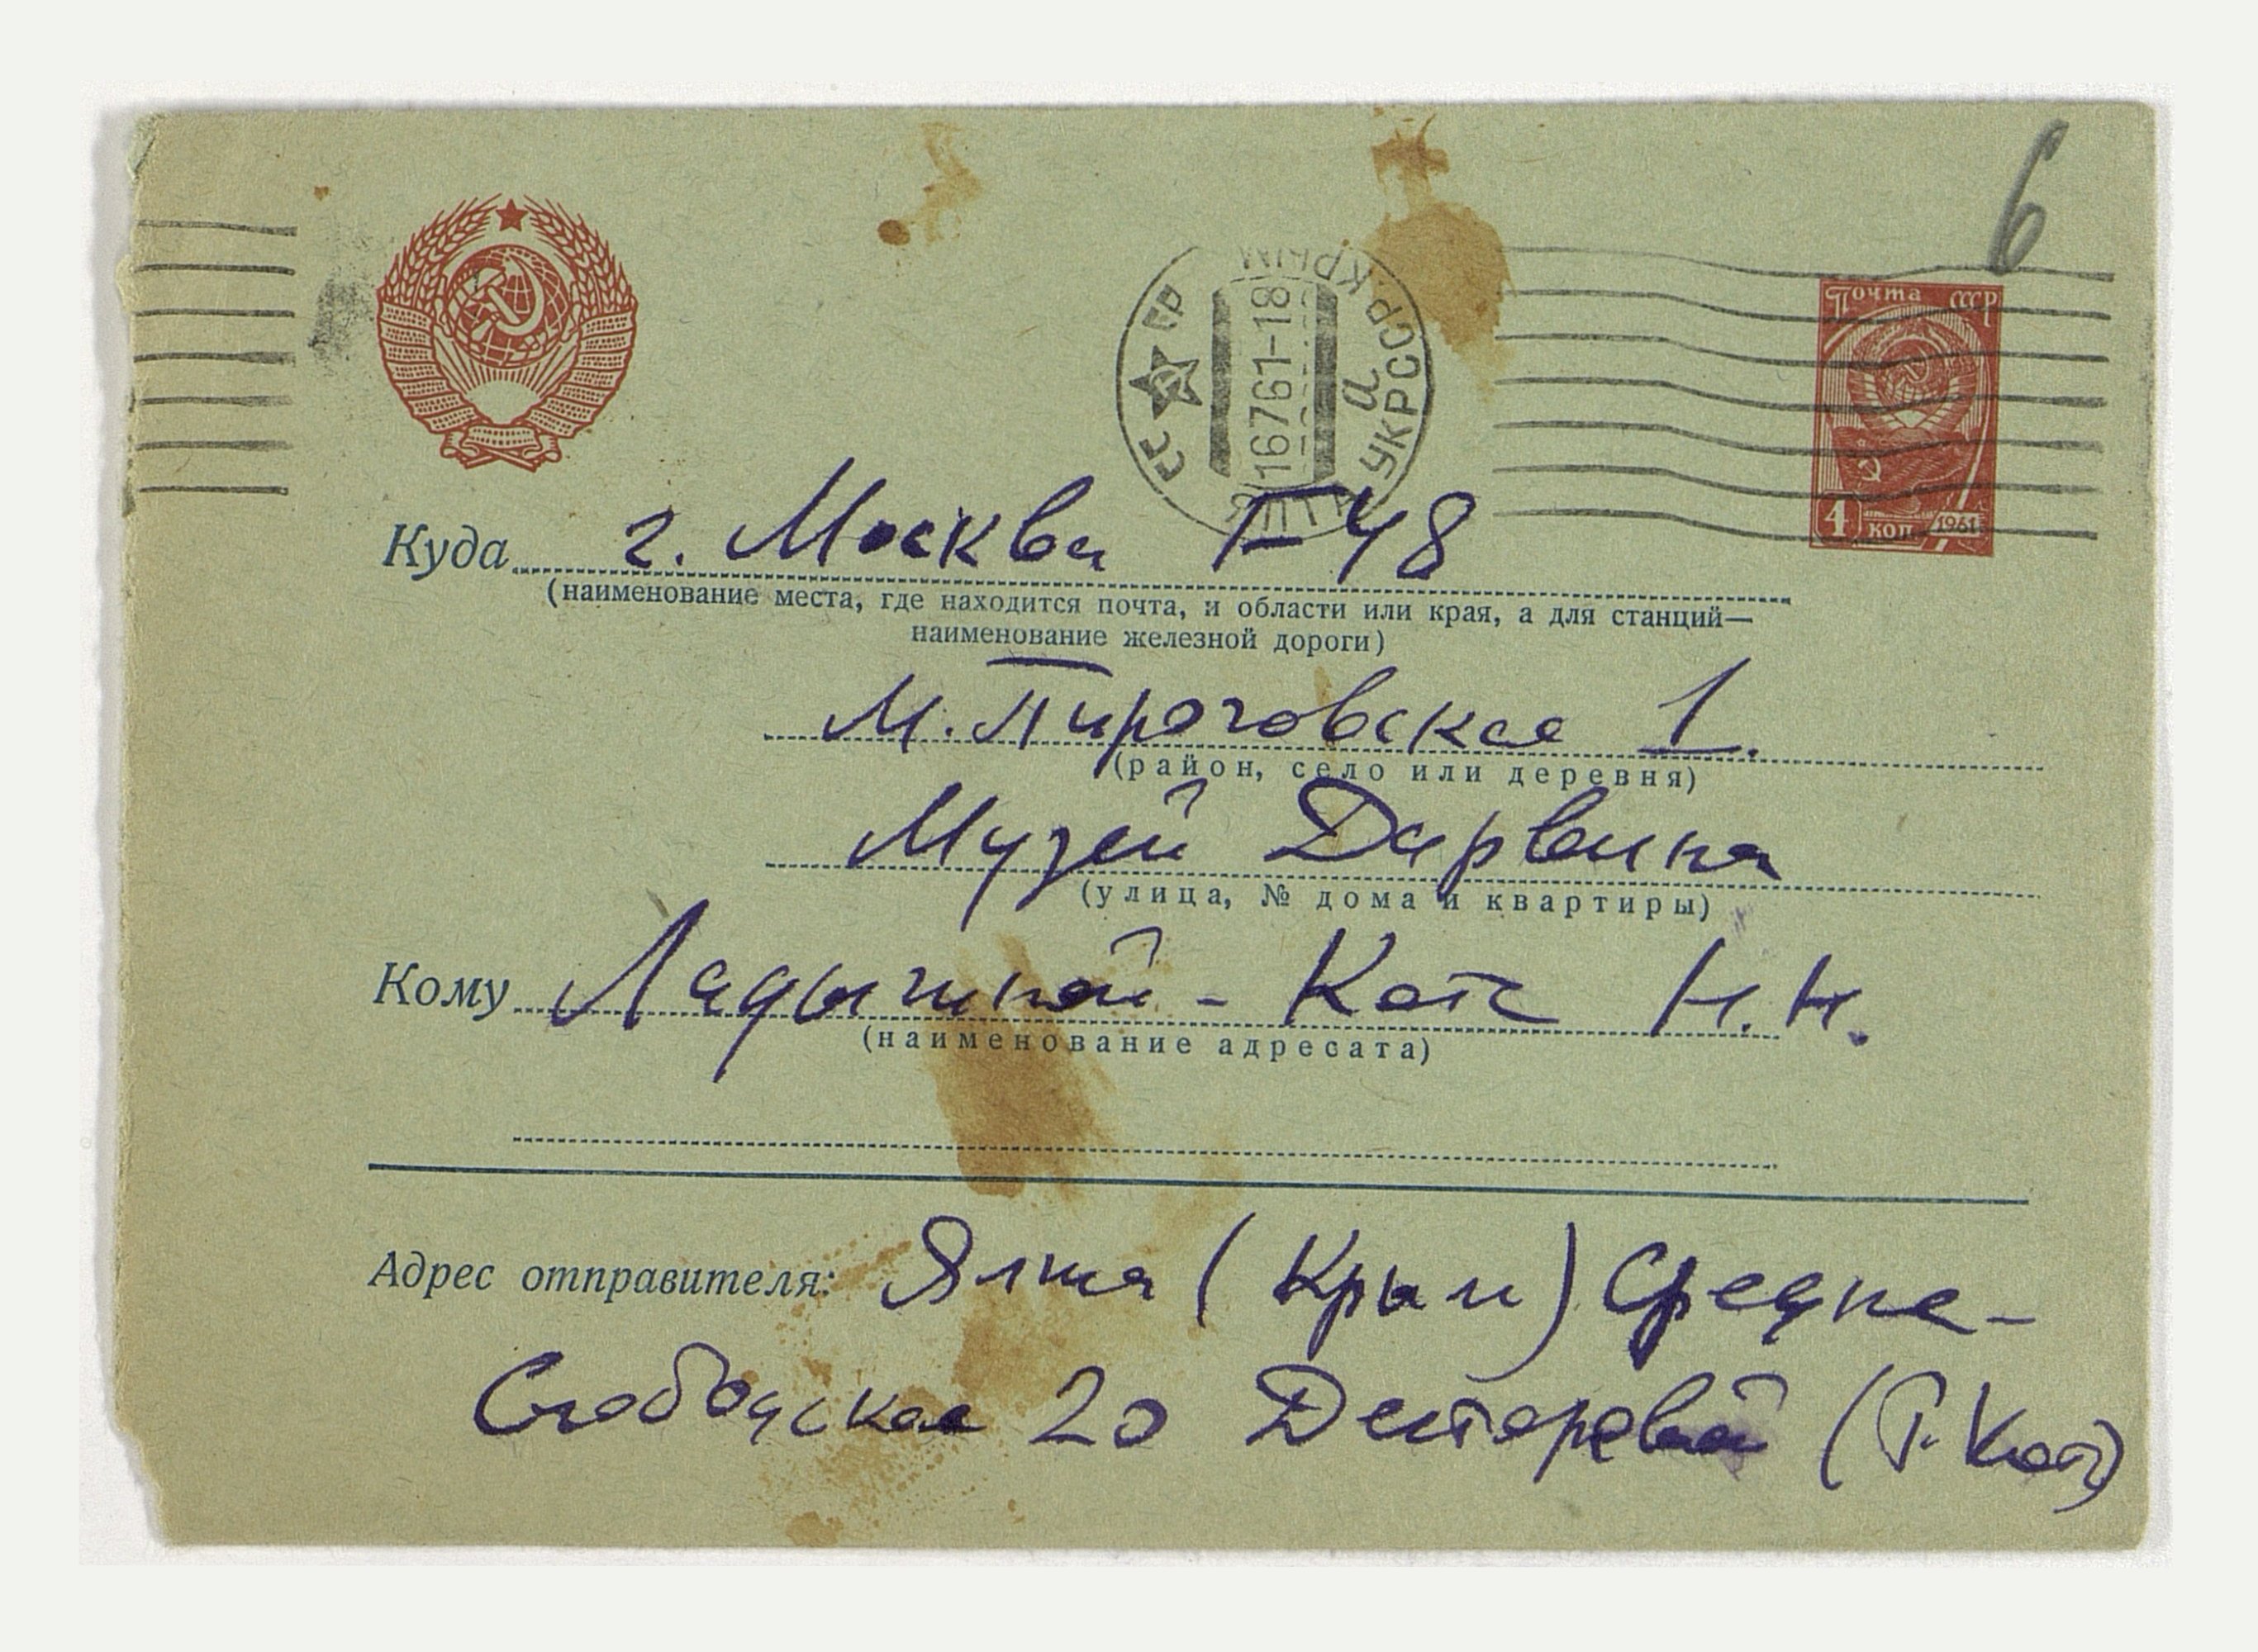 6
Почта СССР
4 коп 1961
СССР
ЯЛТА УКР.ССР.КРЫМ
16761-18
а
Куда г. Москва Г-48
(наименование места, где находится почта, и области или края, а для станций—
наименование железной дороги)
М. Пироговская 1.
(район, село или деревня)
Музей Дарвина
(улица, № дома и квартиры)
Кому Ладыгиной-Котс Н.Н.
(наименование адресата)
Адрес отправителя: Ялта (Крым) Средне-
Слободская 20 Дегтеревой (Г. Котс)